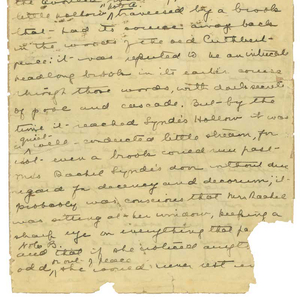 little hollow traversed by a brook
that had its source away back
in the woods of the old Cuthbert
place; it was reputed to be an intricate
headlong brook in its earlier course
through those woods, with dark secrets
of pool and cascade. But by the
time it reached Lynde's Hollow it was
quiet
well-conducted little stream, for
not even a brook could run past
Mrs Rachel Lynde's door without due
regard for decency and decorum; it
probably was conscious that Mrs Rachel
was sitting at her window, keeping a
sharp eye on everything that pa
Note B.
and that if she noticed anyth
odd, she would never rest un